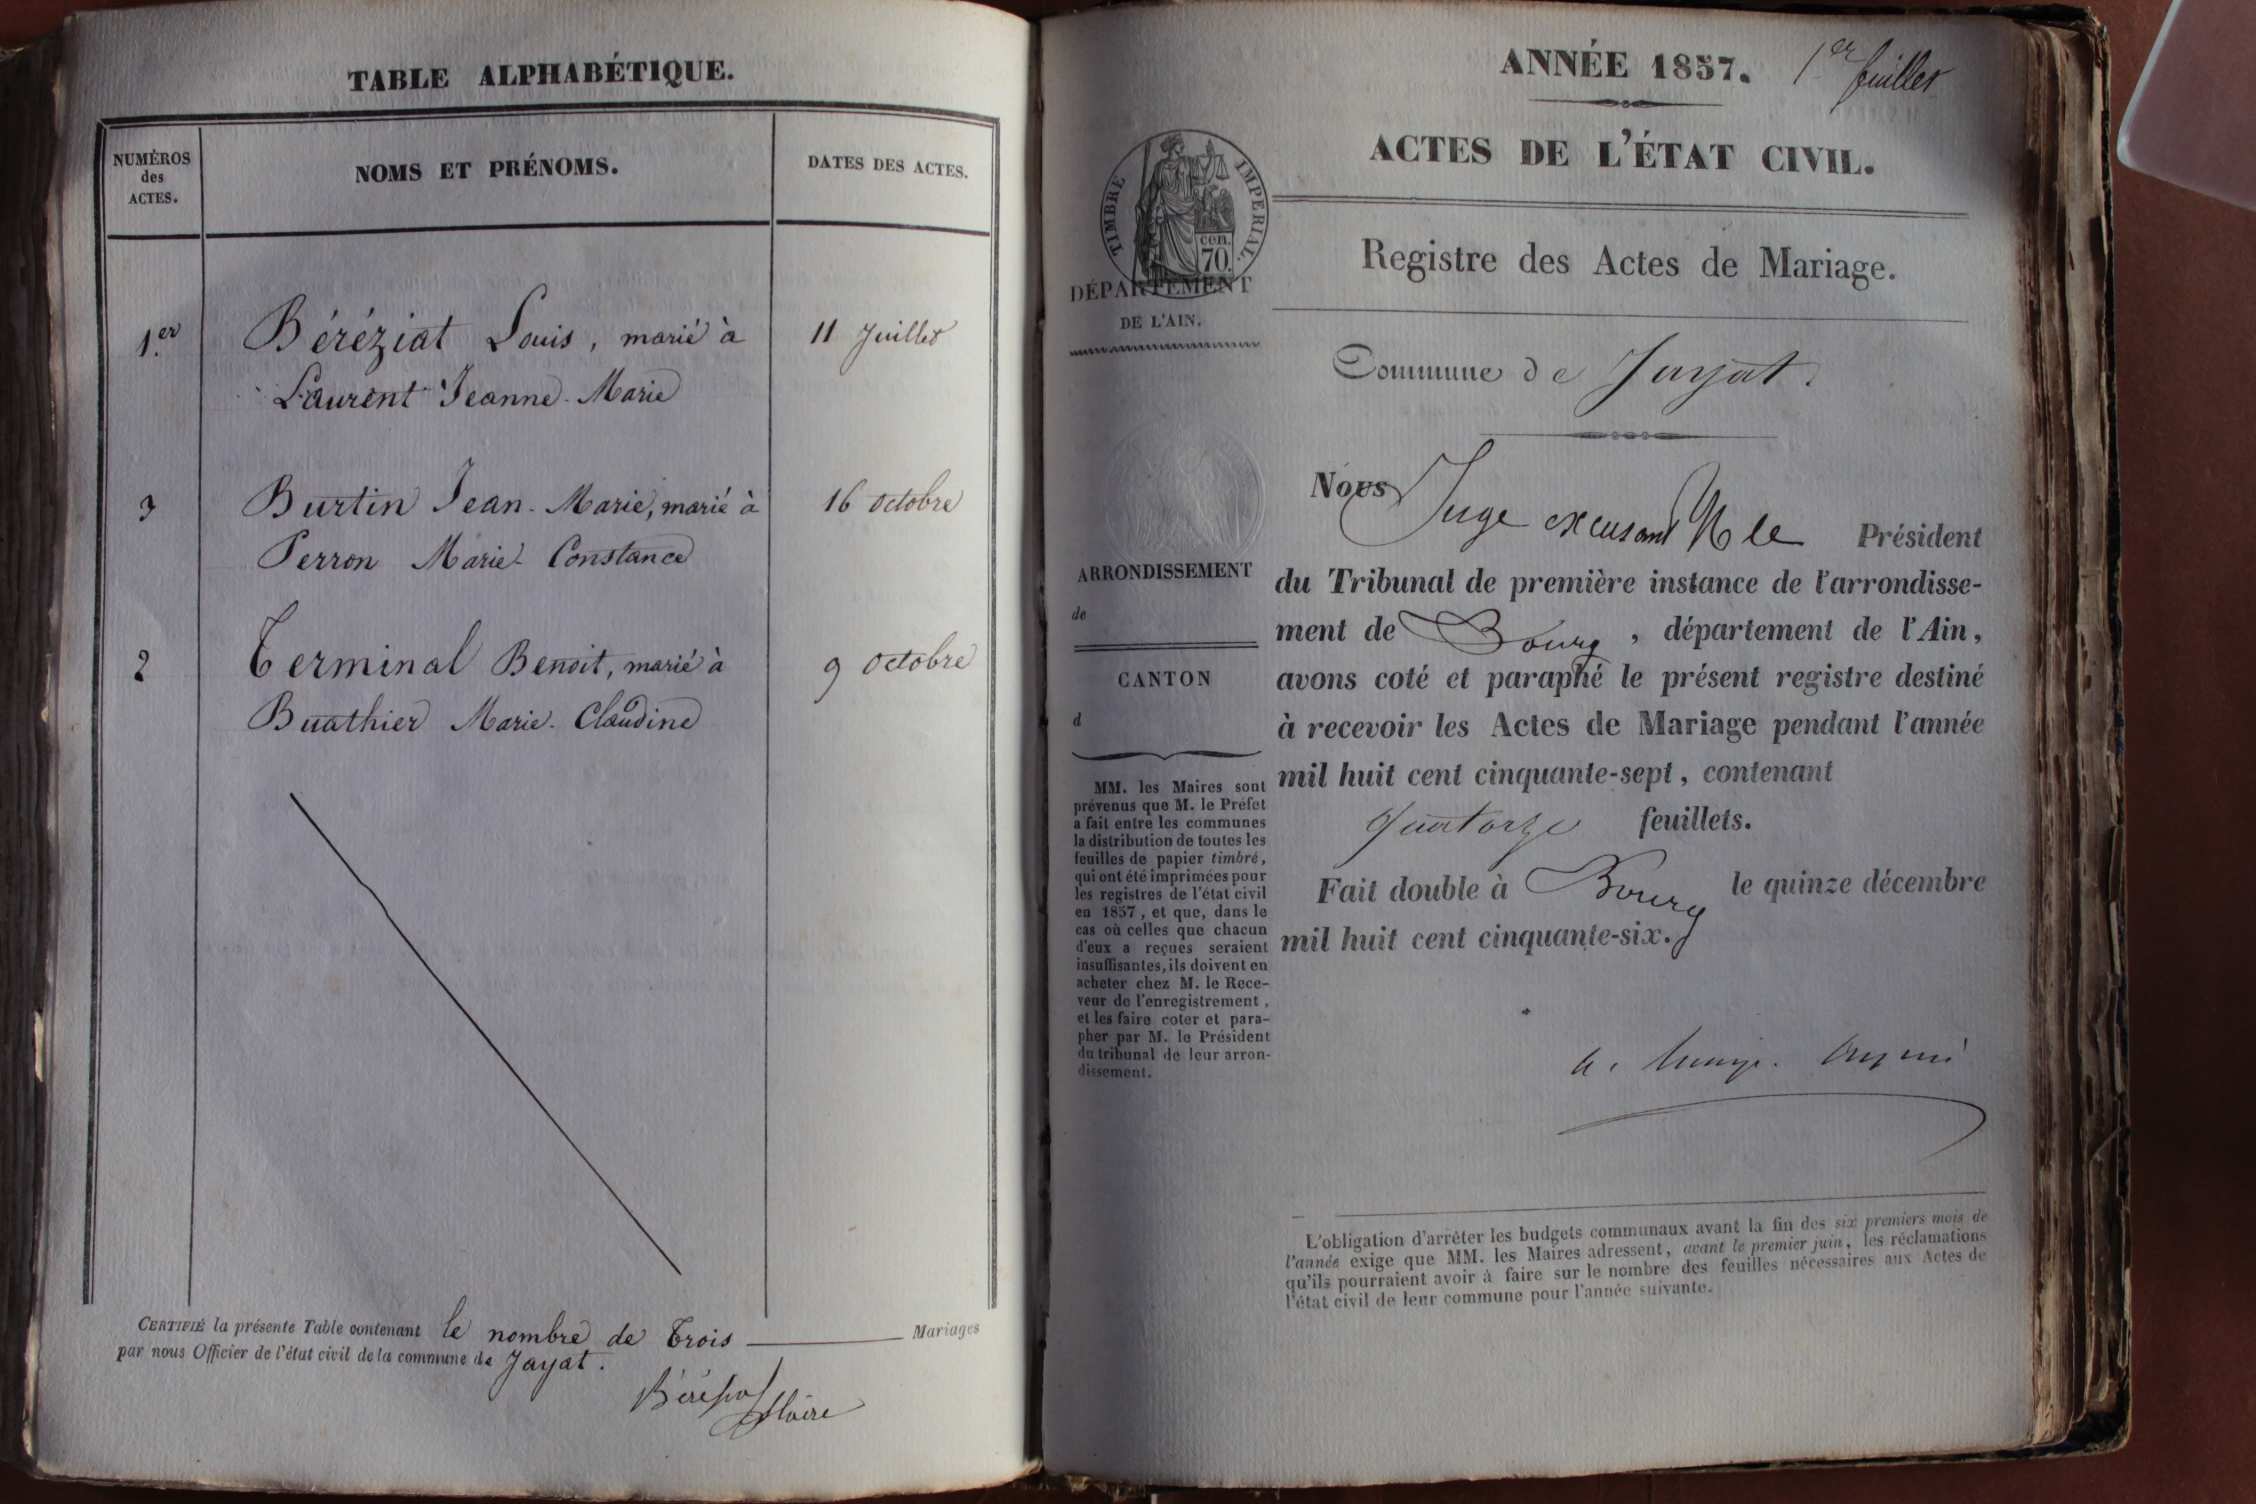 TABLE ALPHABÉTIQUE.
NUMÉROS
des
ACTES.
NOMS ET PRÉNOMS.
DATES DES ACTES.
1.er Béréziat Louis, marié à 11 Juillet
Laurent Jeanne-Marie
3 Burtin Jean-Marie, marié à 16 octobre
Perron Marie-Constance
2 Terminal Benoit, marié à 9 octobre
Buathier Marie-Claudine
CERTIFIÉ la présente Table contenant le nombre de Trois Mariages
par nous Officier de l'état civil de la commune de Jayat.
Maire
ANNÉE 1857. 1er feuillet
ACTES DE L'ÉTAT CIVIL.
TIMBRE IMPERIAL.
cen.
70.
DÉPARTEMENT
DE L'AIN.
Registre des Actes de Mariage.
Commune de Jayat.
ARRONDISSEMENT
de
CANTON
d
MM. les Maires sont
prévenus que M. le Préfet
a fait entre les communes
la distribution de toutes les
feuilles de papier timbré,
qui ont été imprimées pour
les registres de l'état civil
en 1857, et que, dans le
cas où celles que chacun
d'eux a reçues seraient
insuffisantes, ils doivent en
acheter chez M. le Rece-
veur de l'enregistrement,
et les faire coter et para-
pher par M. le Président
du tribunal de leur arron-
dissement.
Nous Juge excusant M le Président
du Tribunal de première instance de l'arrondisse-
ment de Bourg, département de l'Ain,
avons coté et paraphé le présent registre destiné
à recevoir les Actes de Mariage pendant l'année
mil huit cent cinquante-sept, contenant
quatorze feuillets.
Fait double à Bourg le quinze décembre
mil huit cent cinquante-six.
L'obligation d'arrêter les budgets communaux avant la fin des six premiers mois de
l'année exige que MM. les Maires adressent, avant le premier juin, les réclamations
qu'ils pourraient avoir à faire sur le nombre des feuilles nécessaires aux Actes de
l'état civil de leur commune pour l'année suivante.